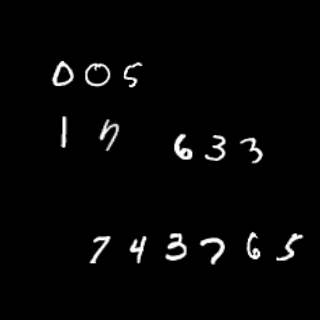 005
17 633
743765